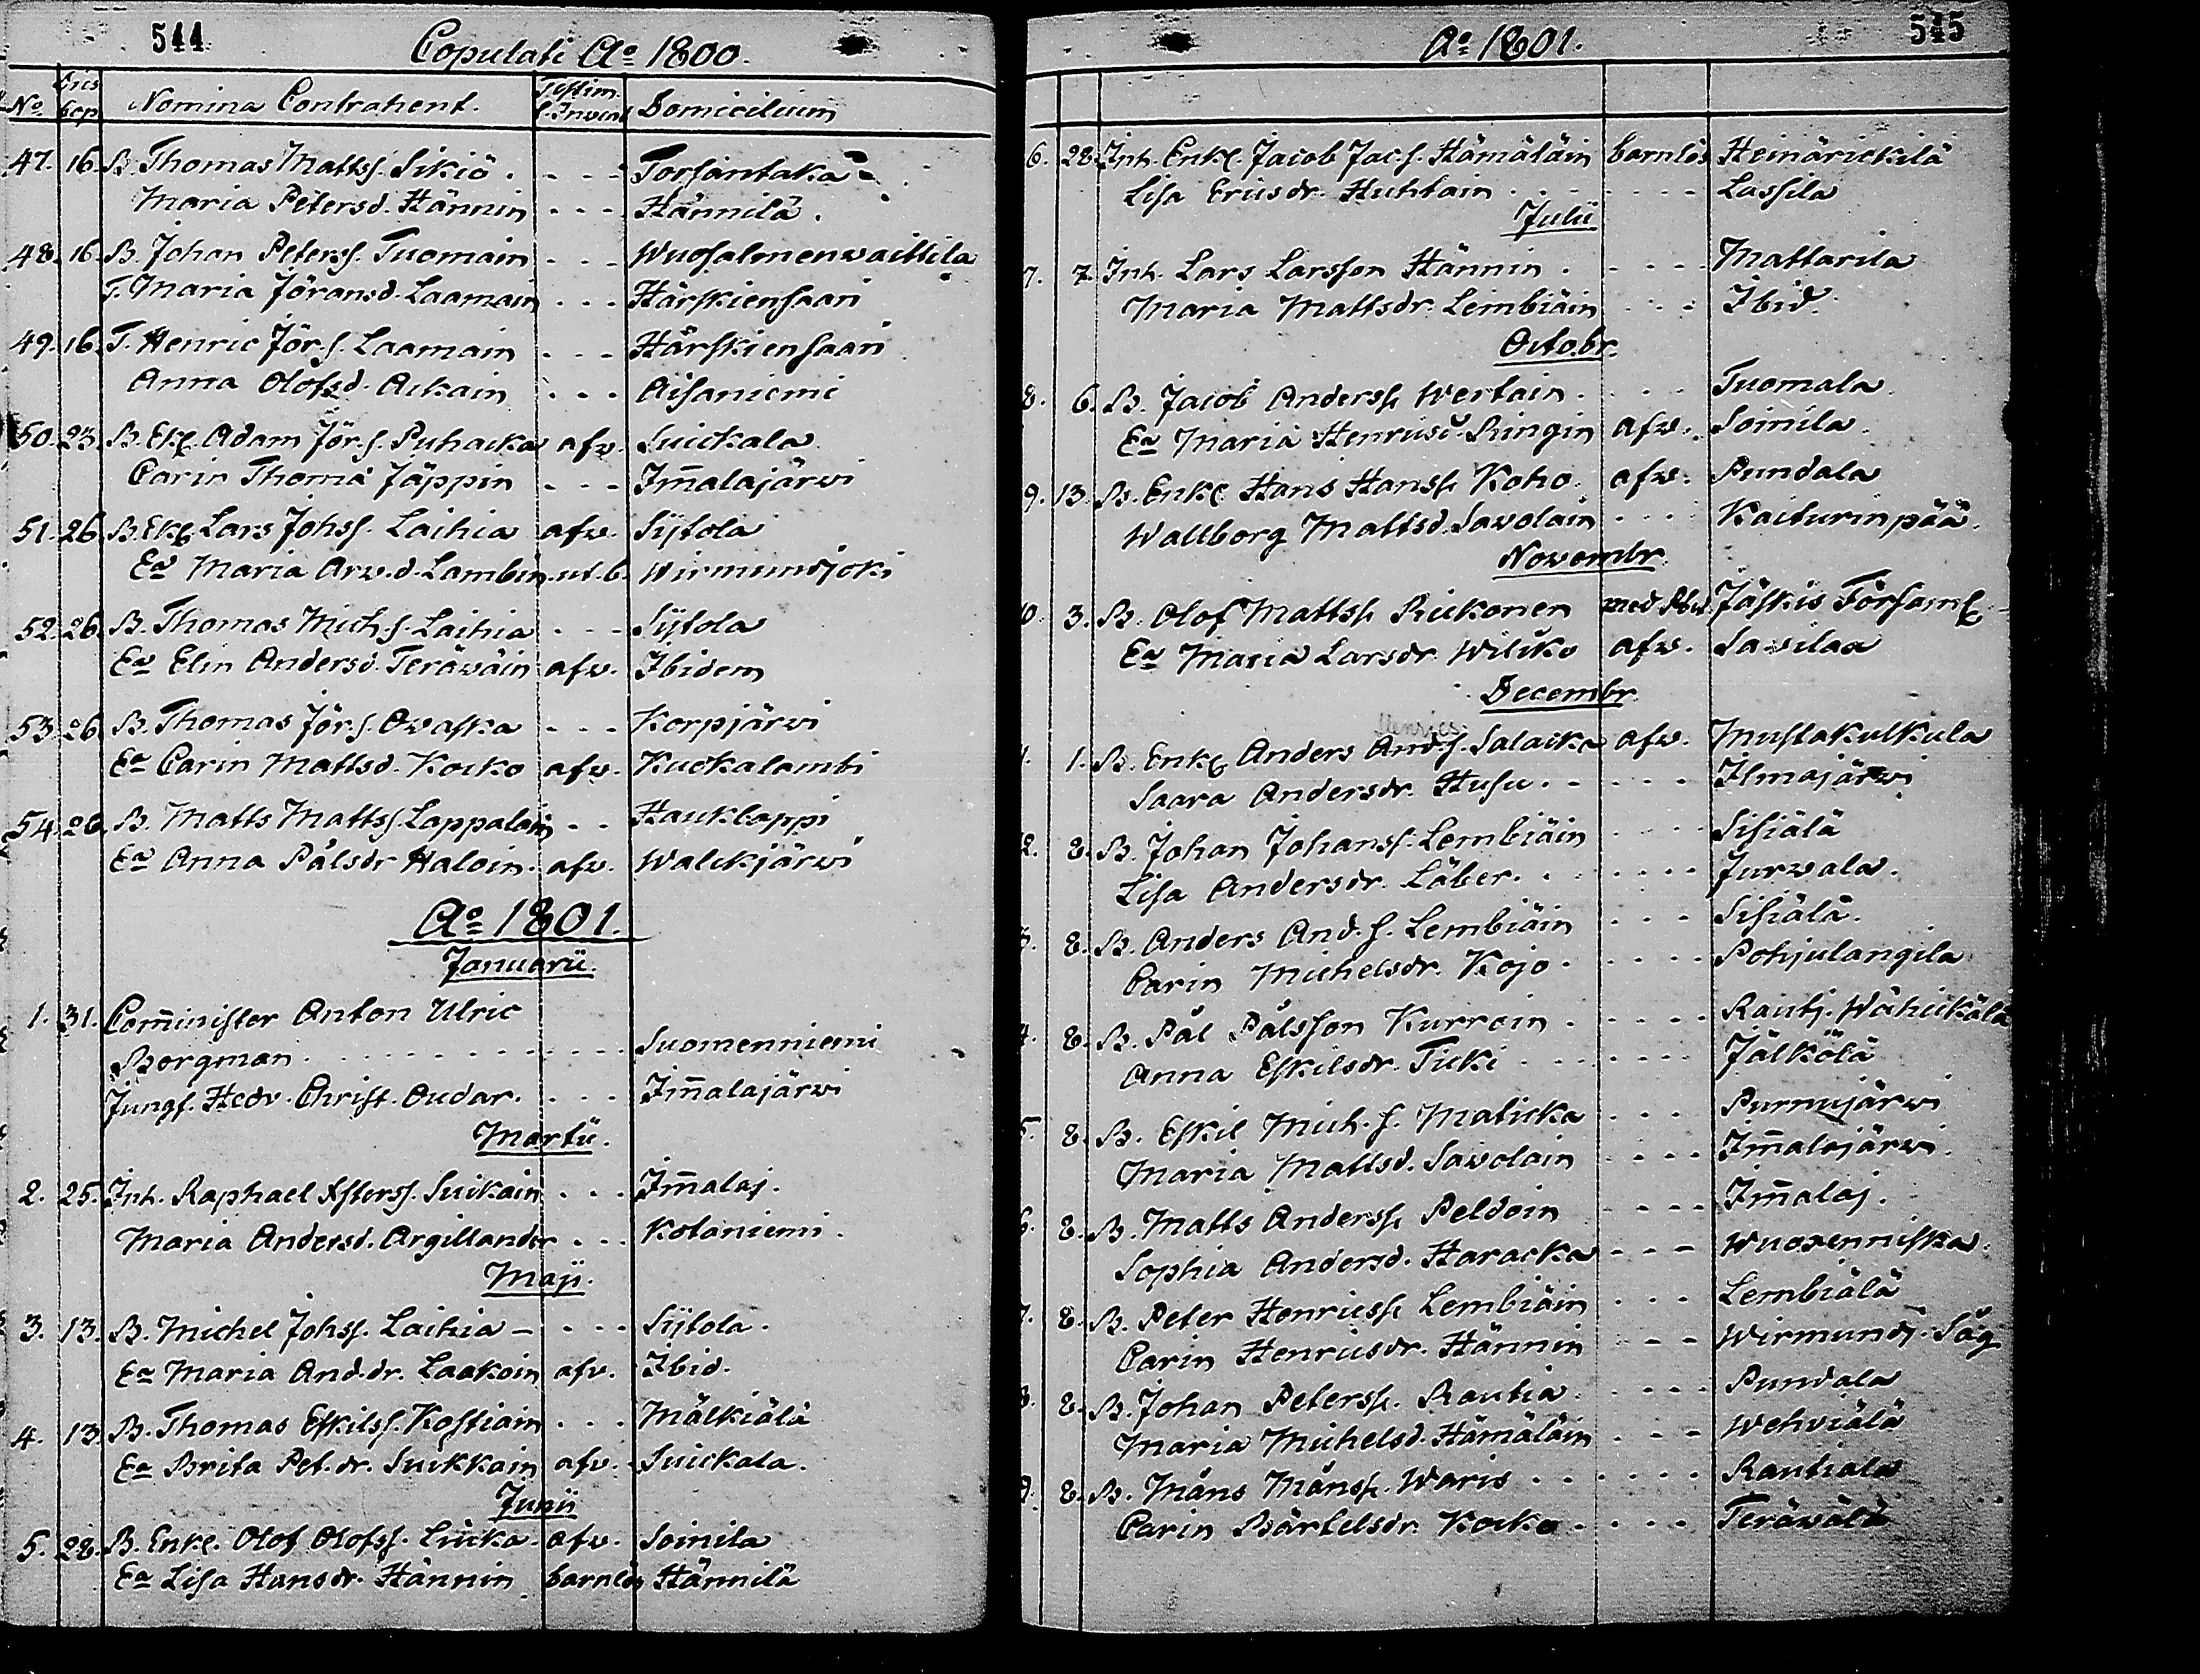 544
Copulati Ao 1800.
No. Dies Cop. Nomina Contrahent. Testim. l. Invent Domicilium
47. 16. B. Thomas Mattss. Sikiö. - - - Torsantaka
Maria Petersd. Hännin - - - Hännilä.
48. 16. B. Johan Peterss. Tuomain - - - Wuosalmenwaittila
T. Maria Jöransd. Laamain - - - Härskiensaari
49. 16. T. Henric Jör.s. Laamain - - - Härskiensaari
Anna Olofsd. Ackain - - - Aisaniemi
50. 23. B. Ekl. Adam Jör.s. Puhacka afw. Suickala
Carin Thoma Jäppin - - - Im̅alajärwi
51. 26. B. Ekl. Lars Johss. Laihia afw. Sijtola
Ea Maria Arw.d. Lambin ut.b. Wirmundjoki
52. 26. B. Thomas Mich.s. Laihia - - - Sijtola
Ea Elin Andersd. Teräwäin afw. Ibidem
53. 26. B. Thomas Jör.s. Owaska - - - Korpjärwi
Ea Carin Mattsd. Kocko afw. Kuckalambi
54. 26. B. Matts Mattss. Lappalain - - Hauklappi
Ea Anna Pålsdr Haloin. afw. Walckjärwi
Ao 1801.
Januarii.
1. 31. Com̅inister Anton Ulric
Borgman - - - Suomenniemi
Jungf. Hedv. Christ. Oudar. - - - Im̅alajärwi
Martii.
2. 25. Inh. Raphael Asterss. Suikain - - - Im̅alaj.
Maria Andersd. Argillander - - - Kotaniemi.
Maji.
3. 13. B. Michel Johss. Laihia - - - - Sijtola.
Ea Maria And.dr. Laakoin afw. Ibid.
4. 13. B. Thomas Eskilss. Kostiain - - - Mälkiälä
Ea Brita Pet.dr. Suikkain afw. Suickala.
Junii
5. 28. B. Enkl. Olof Olofss. Liicka. afw. Soinila
Ea Lisa Hansdr. Hännin barnlös Hännilä
545
Ao 1801.
6. 28. Inh. Enkl. Jacob Jac.s. Hämäläin barnlös Heinärickilä
Lisa Ericsdr. Huhtain - - - Lassila
Julii
7. 7. Inh. Lars Larsson Hännin - - - Mattarila
Maria Mattsdr. Lembiäin - - - Ibid.
Octobr.
8. 6. B. Jacob Anderss. Wertain - - - Tuomala
Ea Maria Henricsd. Ringin afw. Soinila.
9. 13. B. Enkl. Hans Hanss. Koho. afw. Pundala
Wallborg Mattsd. Sawolain - - - Kaiturinpää.
Novembr.
10. 3. B. Olof Mattss. Rickonen med Jäskis Församl.
Ea Maria Larsdr. Wilcko afw. Sawilaa
Decembr.
Henrics
1. 1. B. Enkl. Anders And.s. Salacka afw. Mustakulkula
Saara Andersdr. Husu - - - Ilmajärwi
2. 8. B. Johan Johanss. Lembiäin - - - Sihiälä
Lisa Andersdr. Läber. - - - Jurwala.
3. 8. B. Anders And.s. Lembiäin - - - Sihiälä.
Carin Michelsdr. Kojo - - - Pohjulangila
4. 8. B. Pål Pålsson Kurroin - - - Rautj. Wähickälä
Anna Eskilsdr. Ticki - - - Jälkölä
5. 8. B. Eskil Mich.s. Maticka - - - Purnujärwi
Maria Mattsd. Sawolain - - - Im̅alajärwi.
6. 8. B. Matts Anderss. Peldoin - - - Im̅alaj.
Sophia Andersd. Haracka - - - Wuoxenniska.
7. 8. B. Peter Henricss. Lembiäin - - - Lembiälä
Carin Henricsdr. Hännin - - - Wirmundj. Såg
8. 8. B. Johan Peterss. Rautia - - - Pundala
Maria Michelsd. Hämäläin - - - Wehviälä
9. 8. B. Måns Månss. Waris - - - Rautiala
Carin Bärtelsdr. Kocko - - - Teräwälä